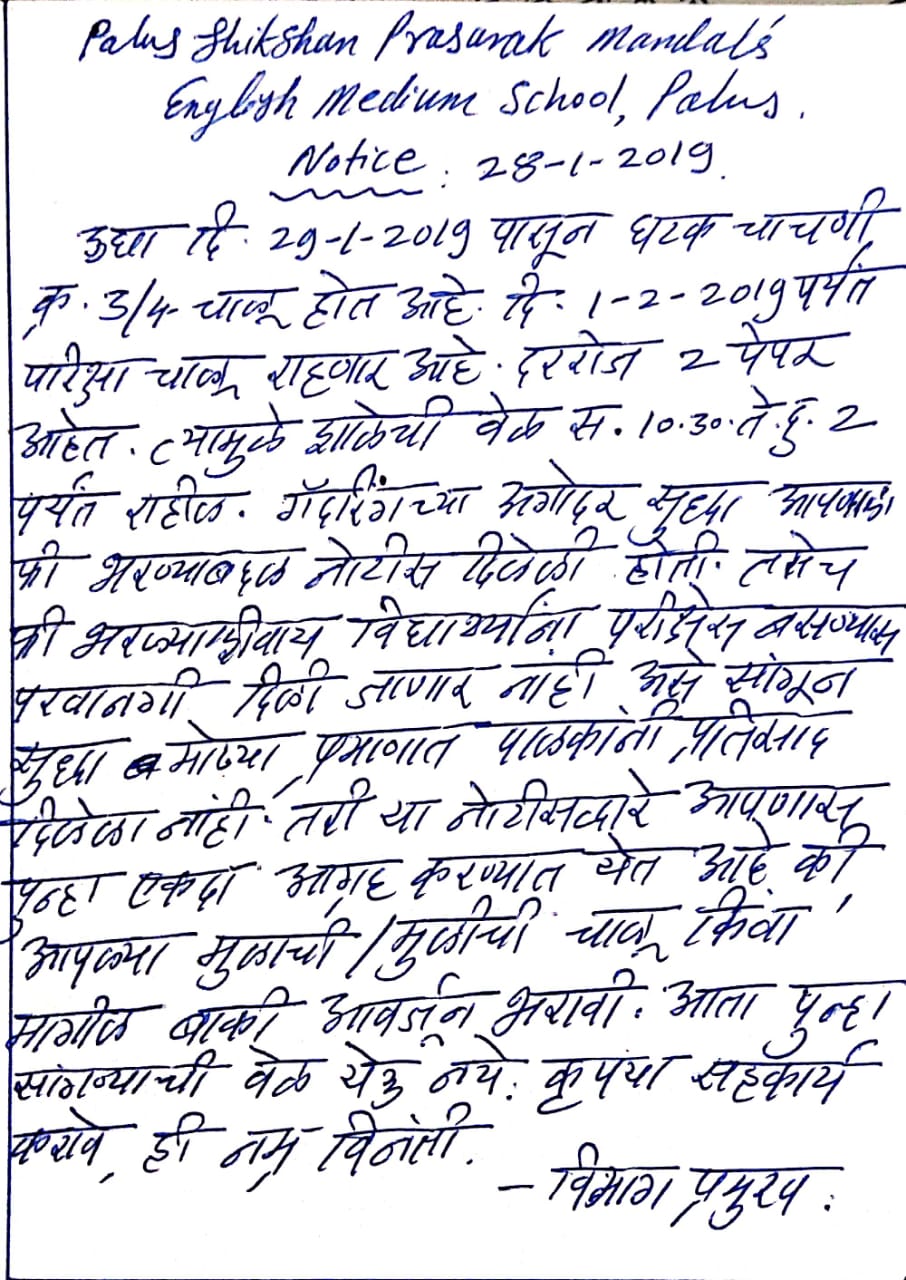 Palus Shikshan Prasarak Mandal's
English Medium School, Palus.
Notice : 28-1-2019.
उद्या दि. 29-1-2019 पासून घटक चाचणी
क्र. 3/4 चालू होत आहे. दि. 1-2-2019 पर्यंत
परिक्षा चालू राहणार आहे. दररोज 2 पेपर
आहेत. त्यामुळे शाळेची वेळ स. 10.30. ते दु. 2
पर्यंत राहील. गॅदरिंगच्या अगोदर सुध्दा आपणास
फी भरण्याबद्दल नोटीस दिलेली होती. तसेच
फी भरल्याशिवाय विद्यार्थ्यांना परीक्षेस बसण्यास
परवानगी दिली जाणार नाही असे सांगून
सुध्दा मोठ्या प्रमाणात पालकांनी प्रतिसाद
दिलेला नाही. तरी या नोटीसद्वारे आपणास
पुन्हा एकदा आग्रह करण्यात येत आहे की,
आपल्या मुलाची / मुलीची चालू किंवा
मागील बाकी आवर्जून भरावी. आता पुन्हा
सांगन्याची वेळ येऊ नये. कृपया सहकार्य
करावे, ही नम्र विनंती.
– विभाग प्रमुख.